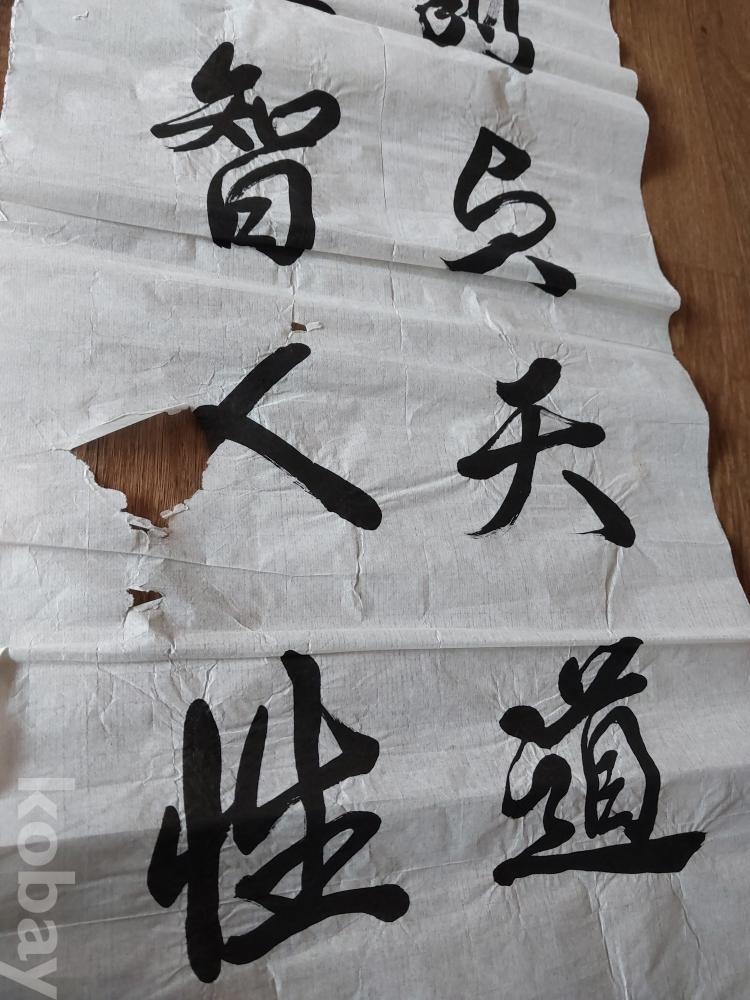 貞天道
智人性
kobay